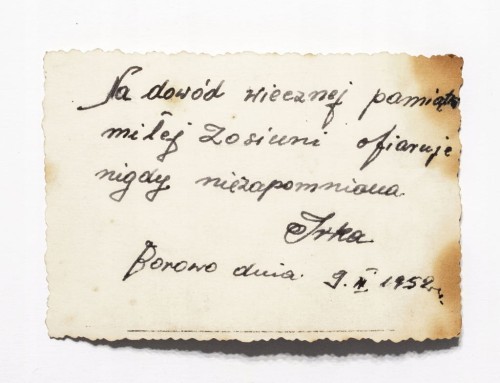 Na dowód wiecznej pamiątki
miłej Zosiuni ofiaruje
nigdy niezapomniana
Irka
Borowo dnia 9. VI 1952 r.